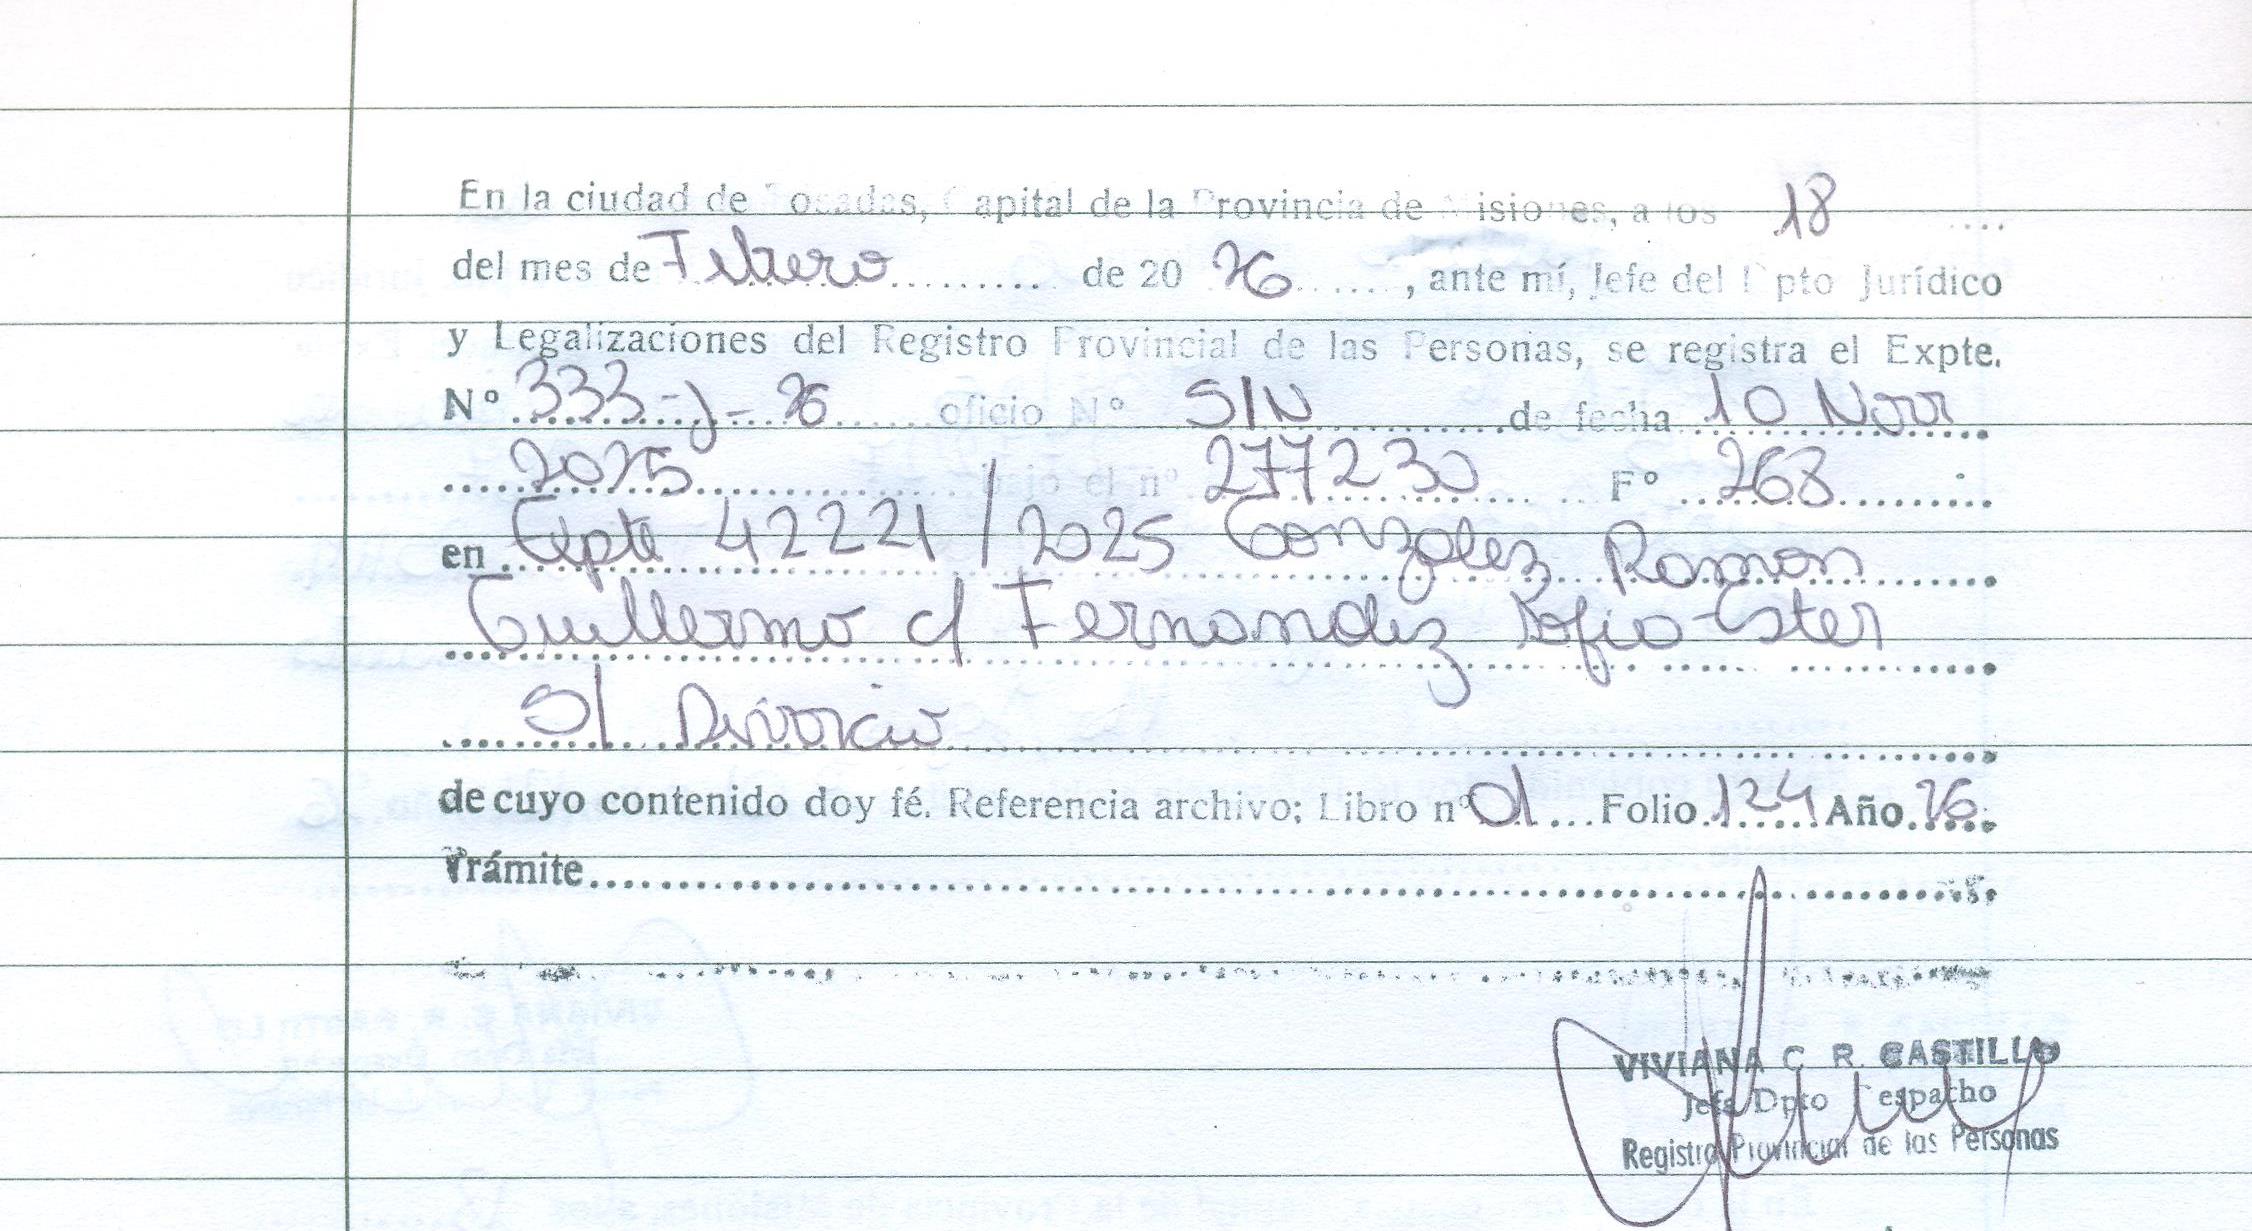 En la ciudad de Posadas, Capital de la Provincia de Misiones, a los 18
del mes de Febrero de 20 26, ante mí, Jefe del Dpto Jurídico
y Legalizaciones del Registro Provincial de las Personas, se registra el Expte.
Nº 333-J-26 oficio Nº S/N de fecha 10 Nov
2025 bajo el nº 277230 Fº 268
en Expte 42221/2025 Gonzalez Ramon
Guillermo c/ Fernandez Sofia Ester
S/ Divorcio
de cuyo contenido doy fé. Referencia archivo; Libro nº 01 Folio 124 Año 26
Trámite
VIVIANA C. R. CASTILLO
Jefa Dpto Despacho
Registro Provincial de las Personas